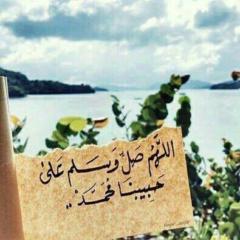 اللَّهُمَّ صَلِّ وَسَلِّم عَلىٰ
حَبِيبِنَا مُحَمَّدْ ..